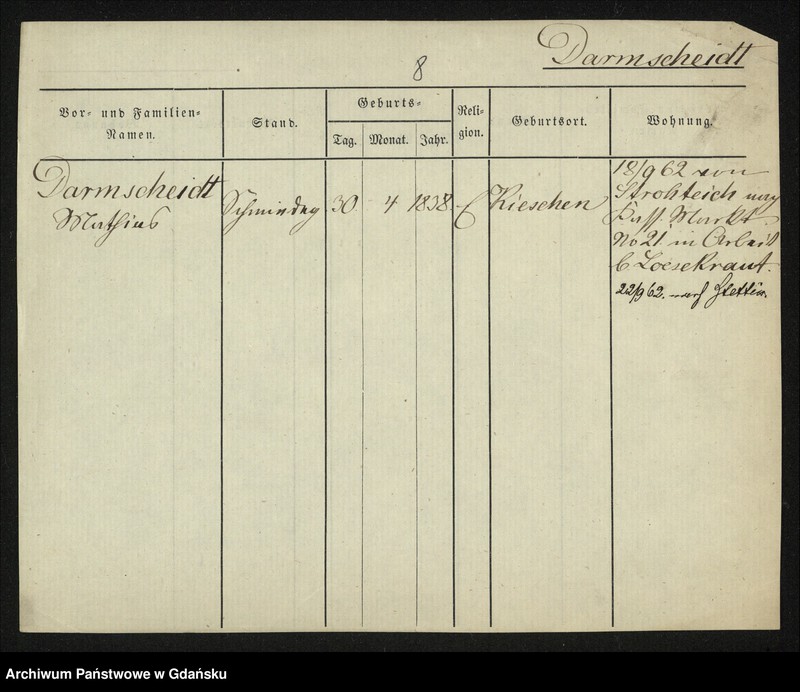 8
Darmscheidt
Vor- und Familien-
Namen.
Stand.
Geburts-
Tag.
Monat.
Jahr.
Reli-
gion.
Geburtsort.
Wohnung.
Darmscheidt
Mathias
30
4
1838
Kieschen
18/9 62 von
Strohteich
Markt
No 21 in Arbeit
b Loesekraut.
22/9 62. nach Stettin.
Archiwum Państwowe w Gdańsku